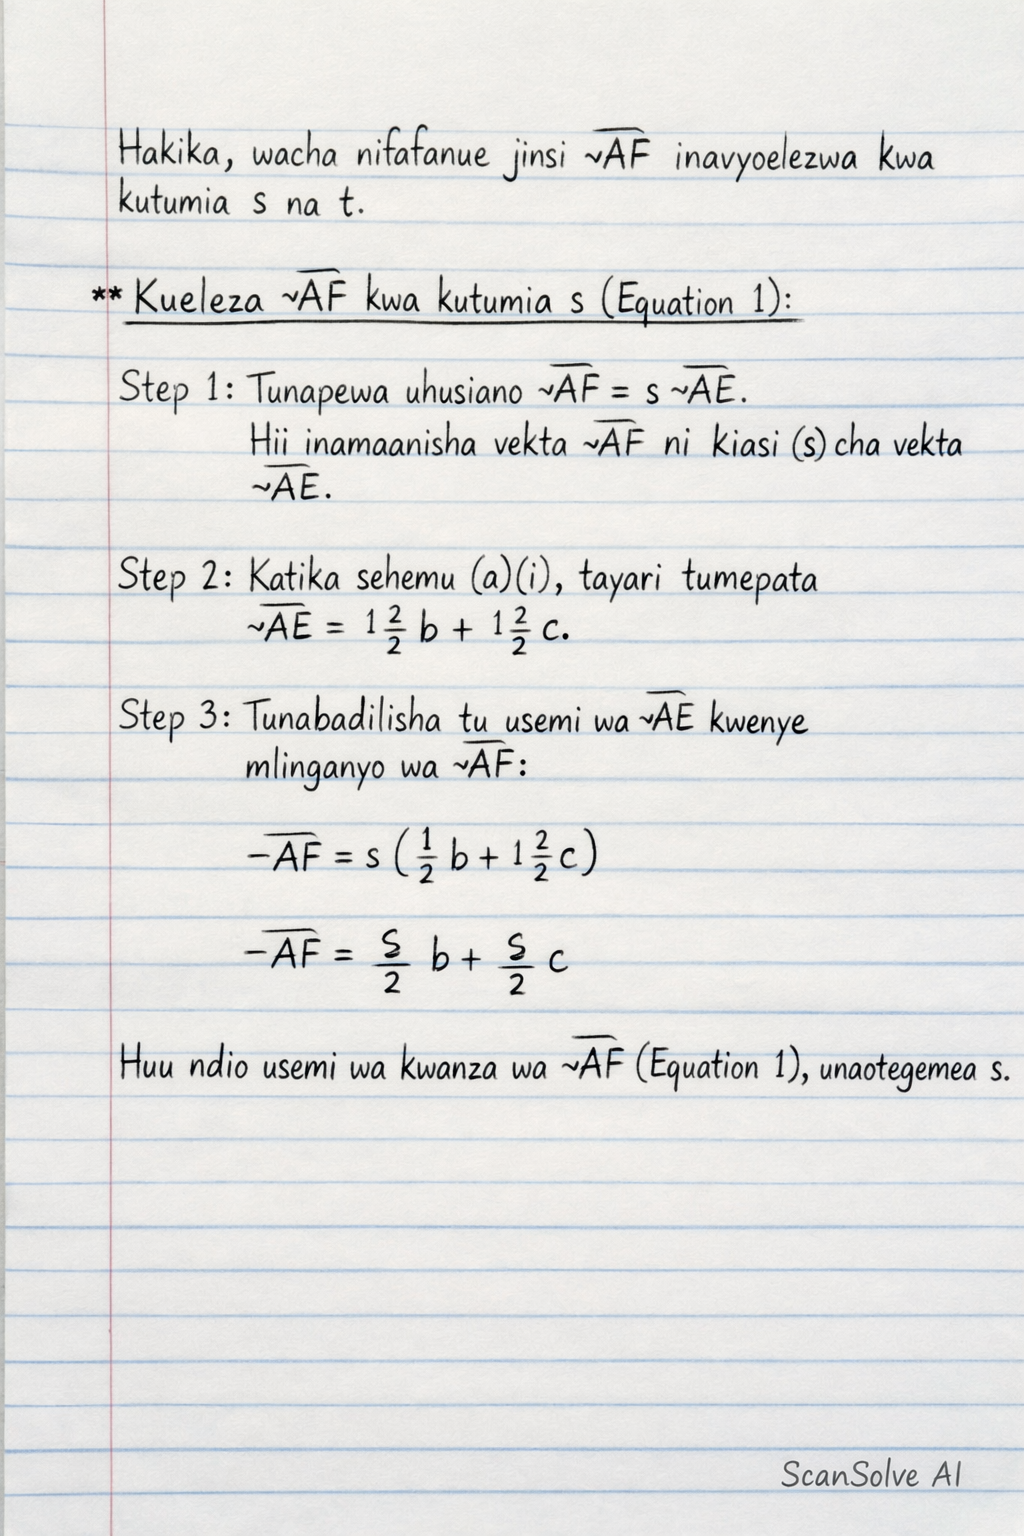 Hakika, wacha nifafanue jinsi ~A̅F̅ inavyoelezwa kwa
kutumia s na t.
** Kueleza ~A̅F̅ kwa kutumia s (Equation 1):
Step 1: Tunapewa uhusiano ~A̅F̅ = s ~A̅E̅.
Hii inamaanisha vekta ~A̅F̅ ni kiasi (s) cha vekta
~A̅E̅.
Step 2: Katika sehemu (a)(i), tayari tumepata
~A̅E̅ = 1 2/2 b + 1 2/2 c.
Step 3: Tunabadilisha tu usemi wa ~A̅E̅ kwenye
mlinganyo wa ~A̅F̅:
–A̅F̅ = s (1/2 b + 1 2/2 c)
–A̅F̅ = s/2 b + s/2 c
Huu ndio usemi wa kwanza wa ~A̅F̅ (Equation 1), unaotegemea s.
ScanSolve AI